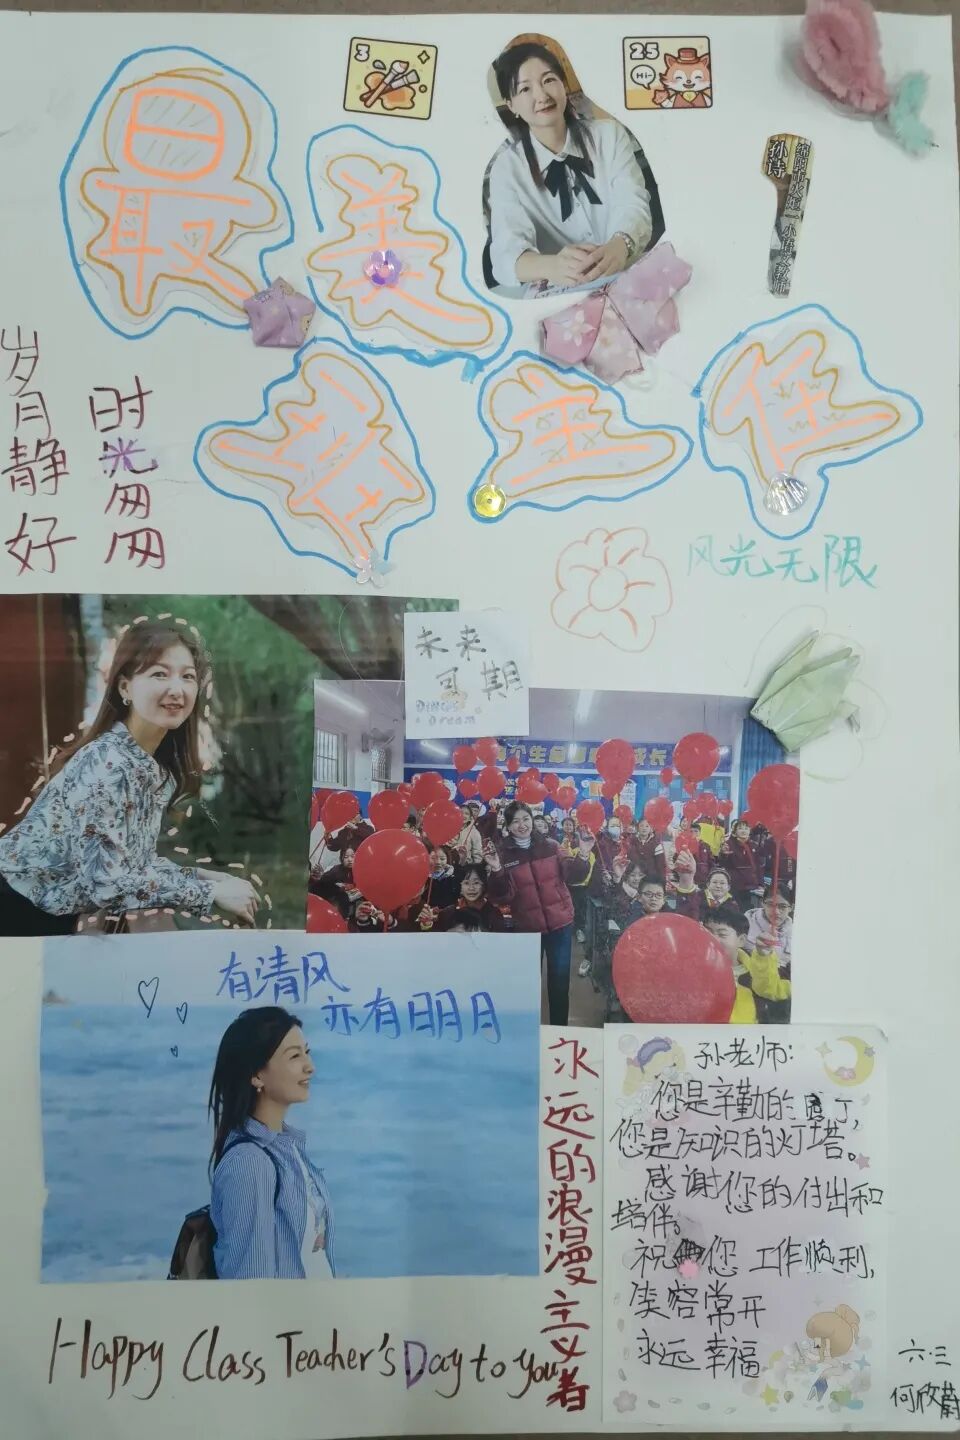 最美
班主任
3
25
Hi~
孙诗
绵阳市火炬一小语文教师
岁月静好
时光匆匆
风光无限
未来
可期
个生命
成长
有清风
亦有明月
永远的浪漫主义者
孙老师：
您是辛勤的园丁，
您是知识的灯塔。
感谢您的付出和
培伴。
祝您工作顺利，
笑容常开
永远幸福
Happy Class Teacher's Day to you
六.三
何欣蔚